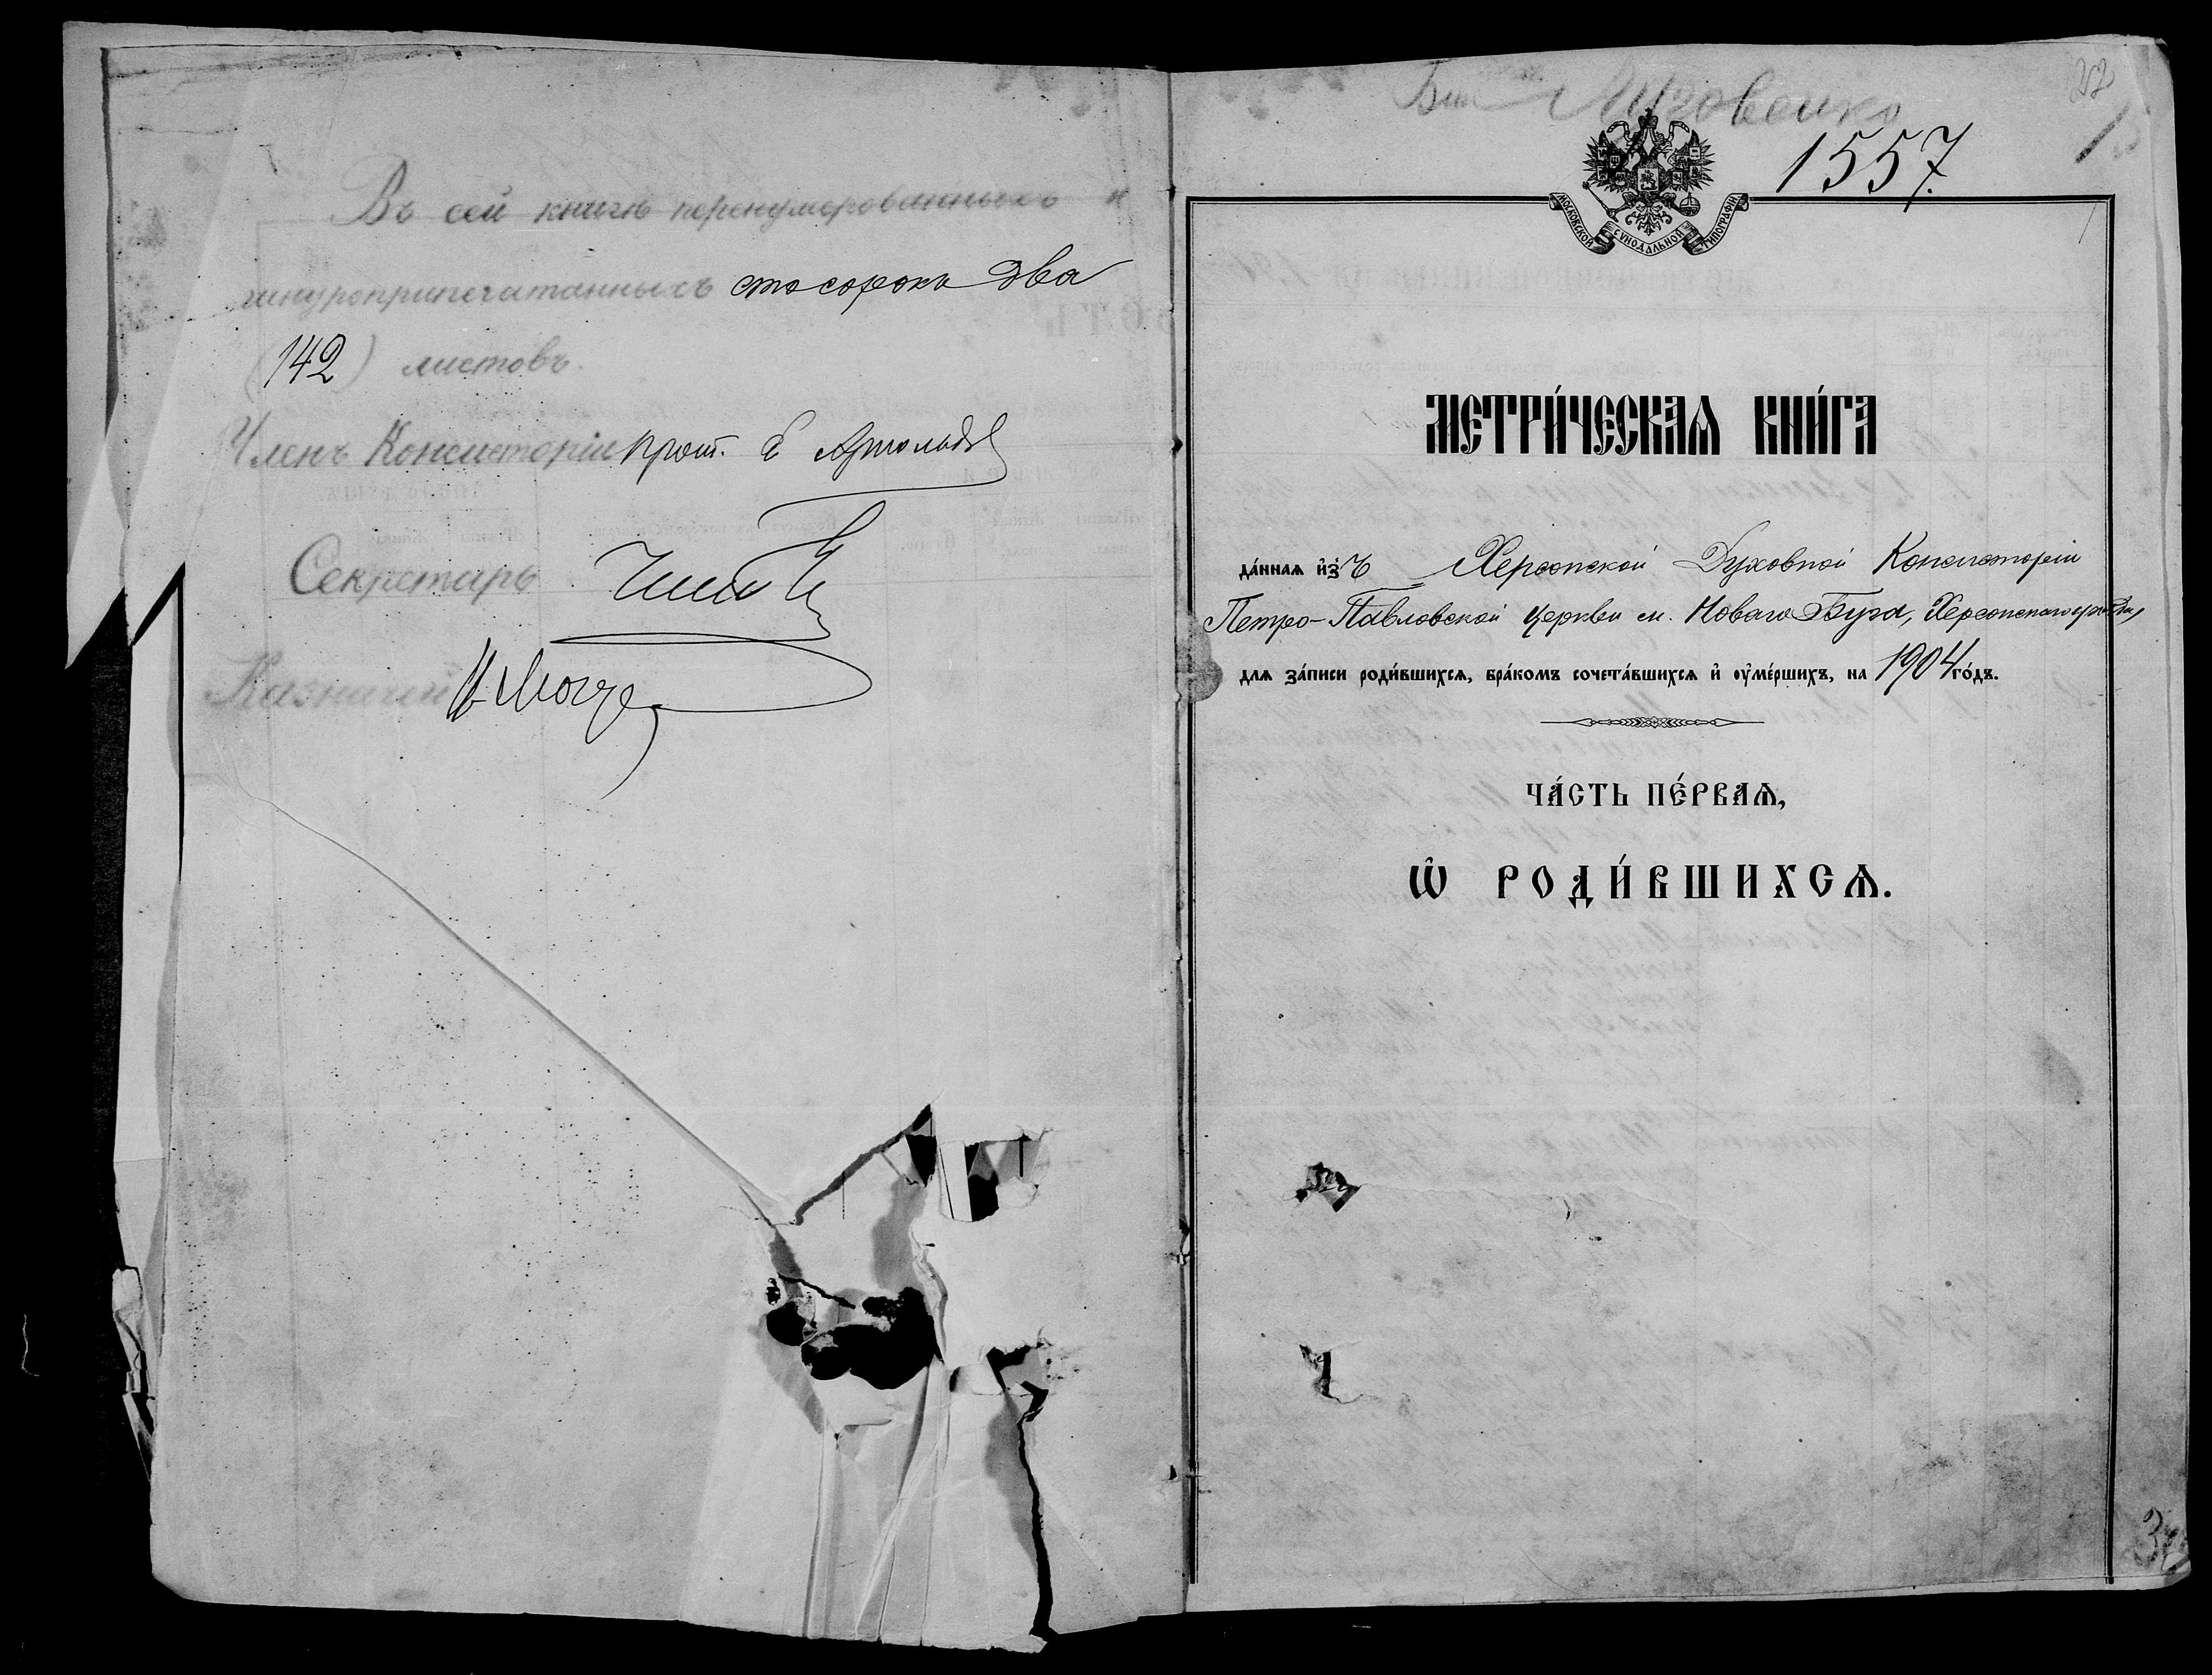 Въ сей книгѣ перенумерованныхъ и
шнуроприпечатанныхъ сто сорокъ два
(142) листовъ.
Членъ Консисторіи прот. Е Арнольдъ
Секретарь
Казначей
22
1557.
1
МОСКОВСКОЙ СѴНОДАЛЬНОЙ ТИПОГРАФІИ
МЕТРИ́ЧЕСКАѦ КНИ́ГА
да́ннаѧ и҆зъ Херсонской Духовной Консисторіи
Петро-Павловской церкви м. Новаго Буга, Херсонскаго уѣзда,
длѧ за́писи роди́вшихсѧ, бра́комъ сочета́вшихсѧ и҆ ѹ҆ме́ршихъ, на 1904 го́дъ.
ЧА́СТЬ ПЕ́РВАѦ,
Ѽ РОДИ́ВШИХСѦ.